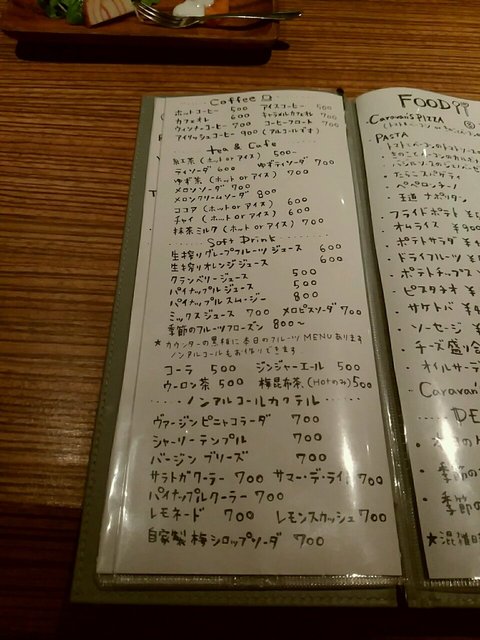 Coffee
ホットコーヒー 500 アイスコーヒー 500
カフェオレ 600 キャラメルカフェオレ 700
ウィンナーコーヒー 700 コーヒーフロート 700
アイリッシュコーヒー 900 (アルコールです)
tea & Cafe
紅茶 (ホット or アイス) 500~
ティソーダ 600 ゆずティソーダ 700
ゆず茶 (ホット or アイス) 700
メロンソーダ 700
メロンクリームソーダ 800
ココア (ホット or アイス) 600
チャイ (ホット or アイス) 600
抹茶ミルク (ホット or アイス) 700
Soft Drink
生搾りグレープフルーツジュース 600
生搾りオレンジジュース 600
クランベリージュース 500
パイナップルジュース 500
パイナップルスムージー 800
ミックスジュース 700 メロピスソーダ 700
季節のフルーツフローズン 800~
★カウンターの黒板に本日のフルーツMENUあります
ノンアルコールもお作りできます
コーラ 500 ジンジャーエール 500
ウーロン茶 500 梅昆布茶 (Hotのみ) 500
ノンアルコールカクテル
ヴァージンピニャコラーダ 700
シャーリーテンプル 700
バージンブリーズ 700
サラトガクーラー 700 サマー・デ・ライト 700
パイナップルクーラー 700
レモネード 700 レモンスカッシュ 700
自家製梅シロップソーダ 700
FOOD
Caravan'S PIZZA
PASTA
たらこスパゲティ
ペペロンチーノ
王道 ナポリタン
フライドポテト
オムライス
ポテトサラダ
ドライフルーツ
ポテトチップス
ピスタチオ
サケトバ
ソーセージ
チーズ盛り
オイルサーデ
Caravan's
DE
季節の
季節の
★混雑時